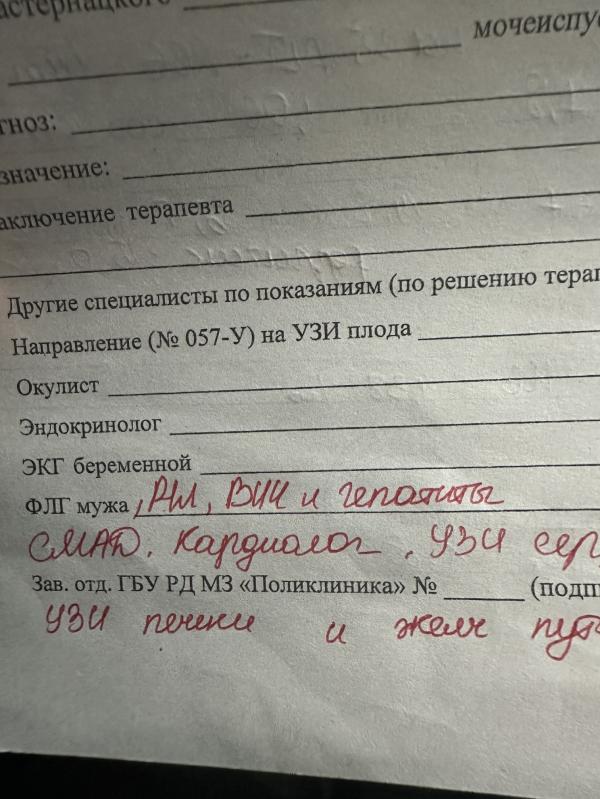 астернацкого
мочеиспу
гноз:
значение:
аключение терапевта
Другие специалисты по показаниям (по решению терап
Направление (№ 057-У) на УЗИ плода
Окулист
Эндокринолог
ЭКГ беременной
ФЛГ мужа, РМ, ВИЧ и гепатиты
СМАД, Кардиолог, УЗИ сер
Зав. отд. ГБУ РД МЗ «Поликлиника» № (подпи
УЗИ печени и желч пут